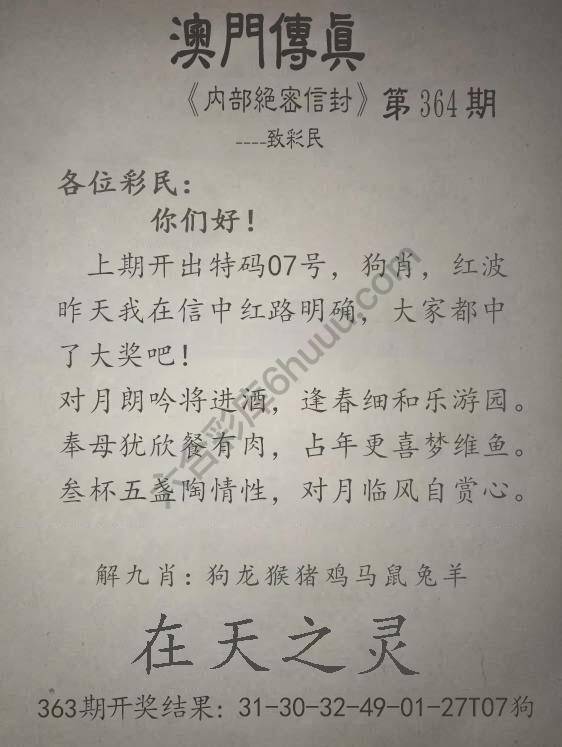 澳門傳真
《内部絕密信封》第364期
----致彩民
各位彩民：
你们好！
上期开出特码07号，狗肖，红波
昨天我在信中红路明确，大家都中
了大奖吧！
对月朗吟将进酒，逢春细和乐游园。
奉母犹欣餐有肉，占年更喜梦维鱼。
叁杯五盏陶情性，对月临风自赏心。
解九肖：狗龙猴猪鸡马鼠兔羊
在天之灵
363期开奖结果：31-30-32-49-01-27T07狗
六合彩库6huuu.com